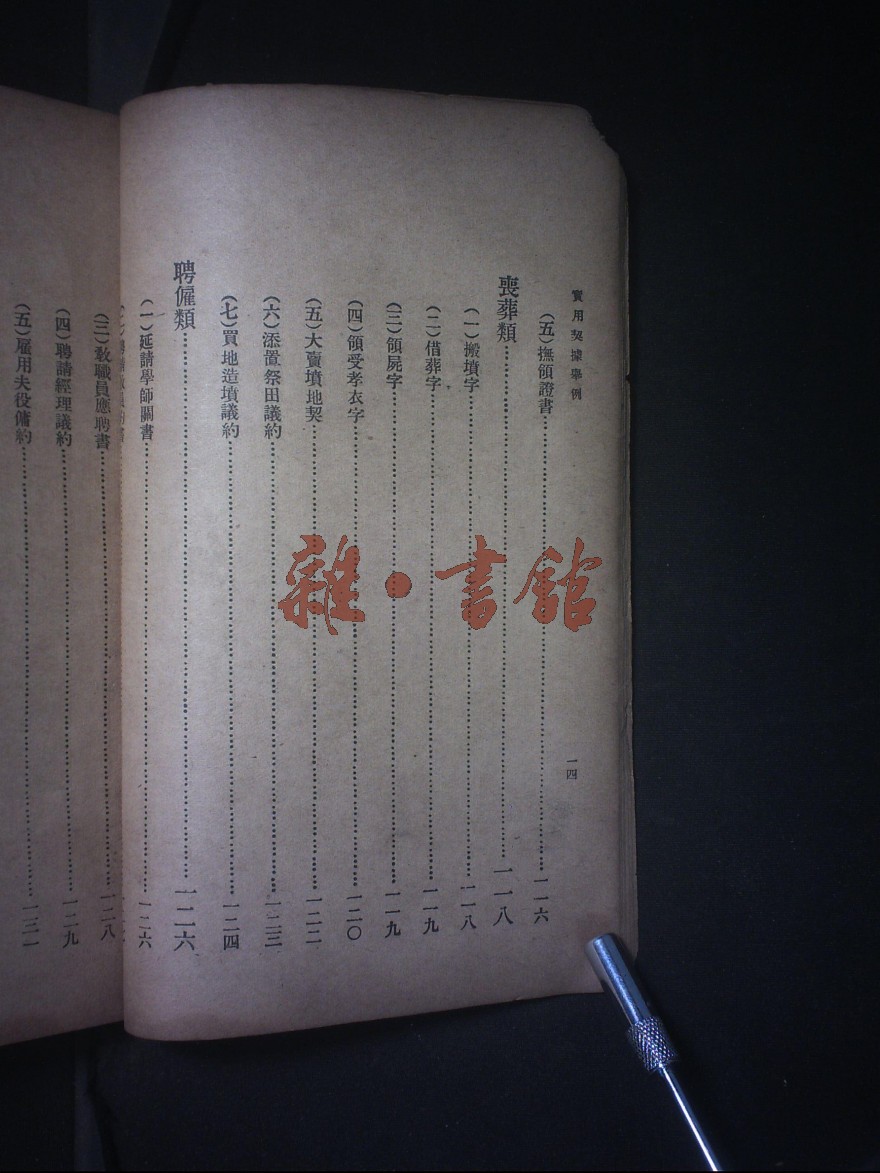 實用契據舉例
一四
(五)撫領證書…………一一六
喪葬類…………一一八
(一)搬墳字…………一一八
(二)借葬字…………一一九
(三)領屍字…………一一九
(四)領受孝衣字…………一二〇
(五)大賣墳地契…………一二二
(六)添置祭田議約…………一二三
(七)買地造墳議約…………一二四
聘僱類…………一二六
(一)延請學師關書…………一二六
(三)教職員應聘書…………一二八
(四)聘請經理議約…………一二九
(五)雇用夫役傭約…………一三一
雜·書館